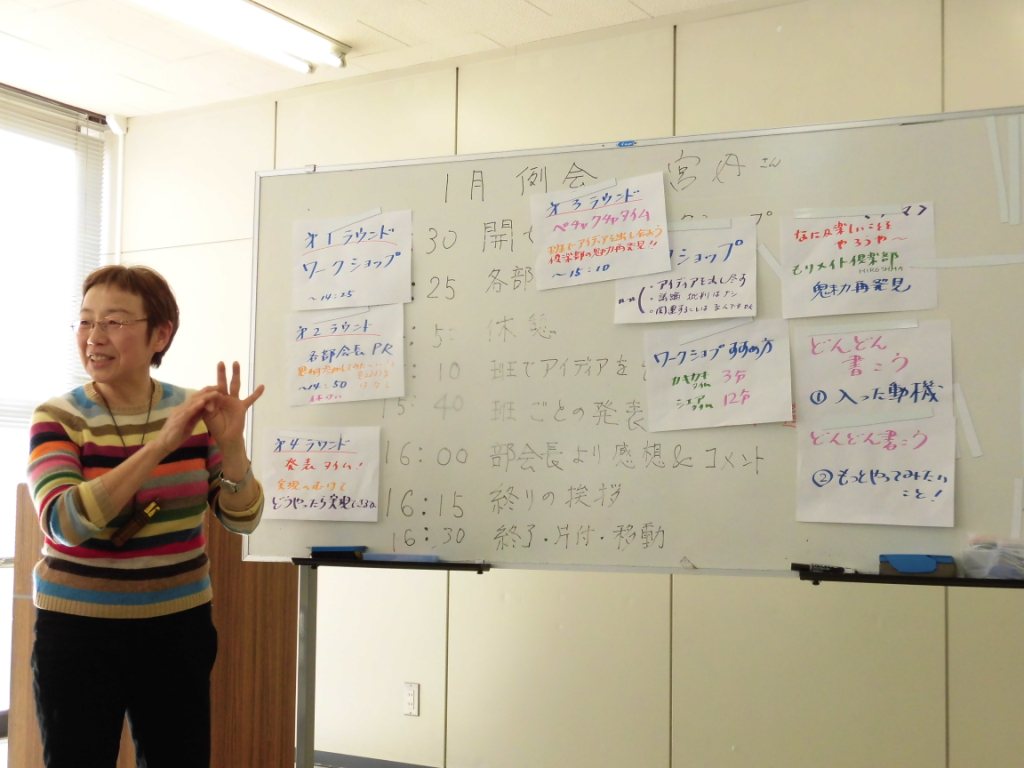 1月 例会 宮内さん
30 開
25 各部
休憩
10 班でアイディアを
15:40 班ごとの発表
16:00 部会長より感想&コメント
16:15 終りの挨拶
16:30 終了・片付・移動
オ1ラウンド
ワークショップ
~14:25
オ2ラウンド
各部会長PR
~14:50
オ3ラウンド
ペチャクチャタイム
倶楽部の魅力再発見!!
~15:10
オ4ラウンド
発表タイム!
実現へむけて
どうやったら実現できるか
クショップ
・アイディアを出し尽す
・議論 批判はナシ
ワークショプすすめ方
カキカキタイム 3分
シェアタイム 12分
なに及楽しいことを
やろうや~
もりメイト倶楽部
HIROSHIMA
魅力再発見
どんどん
書こう
①入った動機
どんどん書こう
②もっとやってみたい
こと!